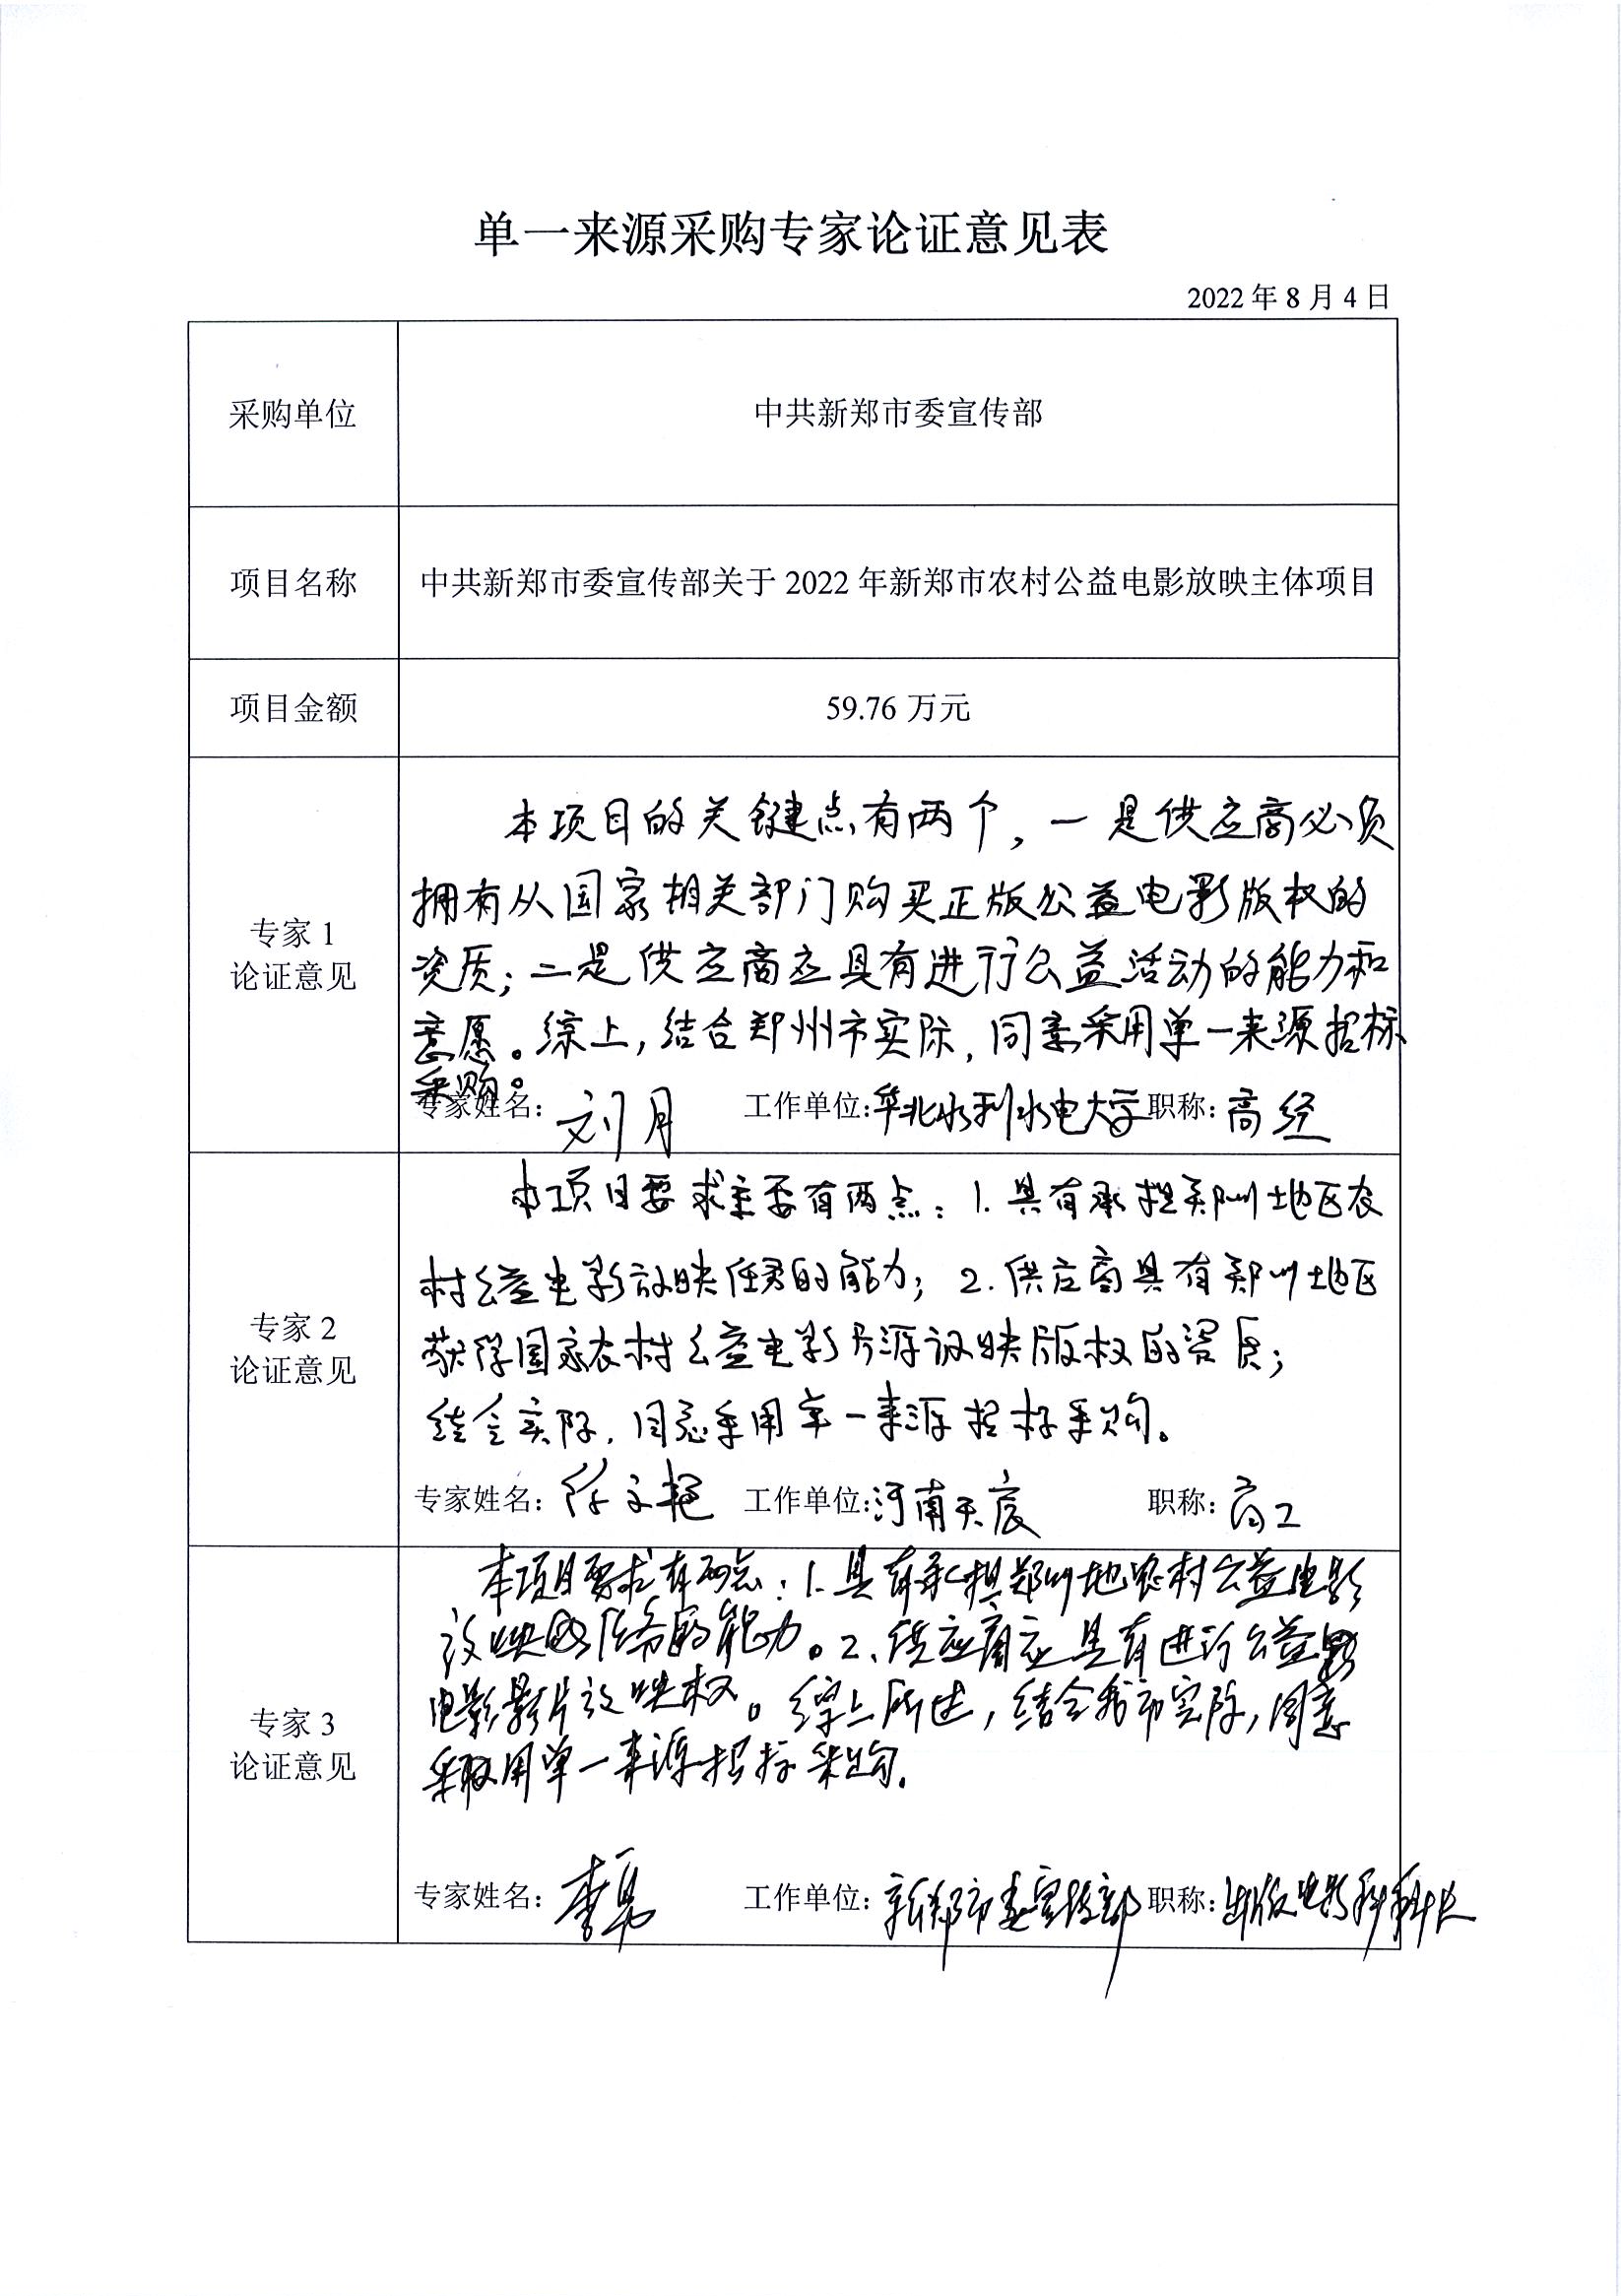 单一来源采购专家论证意见表
2022年8月4日
采购单位
中共新郑市委宣传部
项目名称
中共新郑市委宣传部关于2022年新郑市农村公益电影放映主体项目
项目金额
59.76万元
专家1
论证意见
本项目的关键点有两个，一是供应商必须
拥有从国家相关部门购买正版公益电影版权的
资质；二是供应商应具有进行公益活动的能力和
意愿。综上，结合郑州市实际，同意采用单一来源招标
采购。
专家姓名：刘月 工作单位：华北水利水电大学 职称：高经
专家2
论证意见
本项目要求主要有两点：1.具有承担郑州地区农
村公益电影放映任务的能力；2.供应商具有郑州地区
获得国家农村公益电影片源放映版权的资质；
结合实际，同意采用单一来源招标采购。
专家姓名：陈文艳 工作单位：河南天辰 职称：高工
专家3
论证意见
本项目要求有两点：1.具有承担郑州地农村公益电影
放映任务的能力。2.供应商应具有进行公益
电影影片放映权。综上所述，结合我市实际，同意
采取用单一来源招标采购。
专家姓名：李勇 工作单位：新郑市委宣传部 职称：出版电影科科长